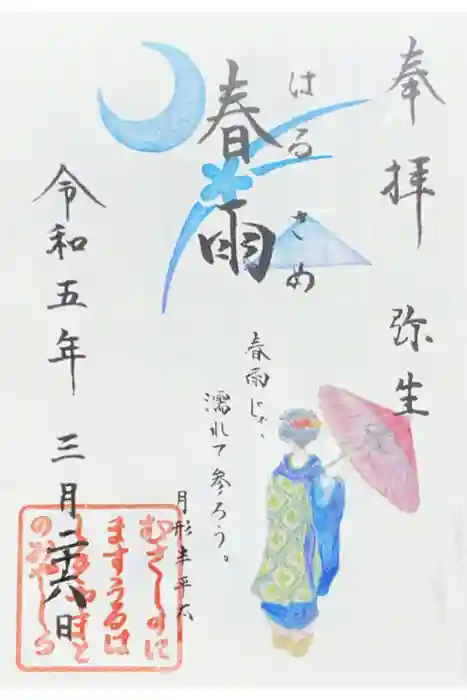 奉拝 弥生
はるさめ
春雨
春雨じゃ、
濡れて参ろう。
月形半平太
令和五年 三月二十六日
むさしのに
ますうるは
のおやしろ